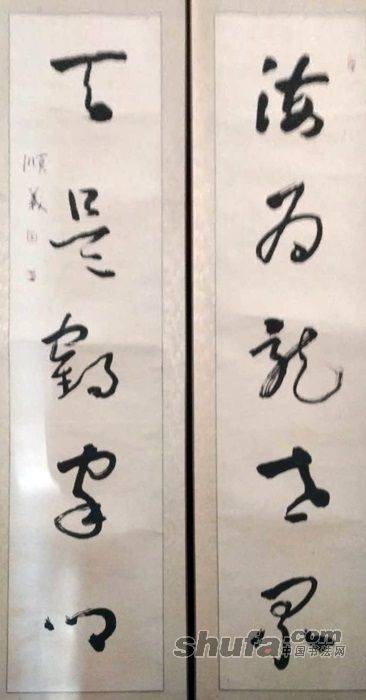 海為龍世界
天是鶴家鄉
順義
shufa.com
中国书法网